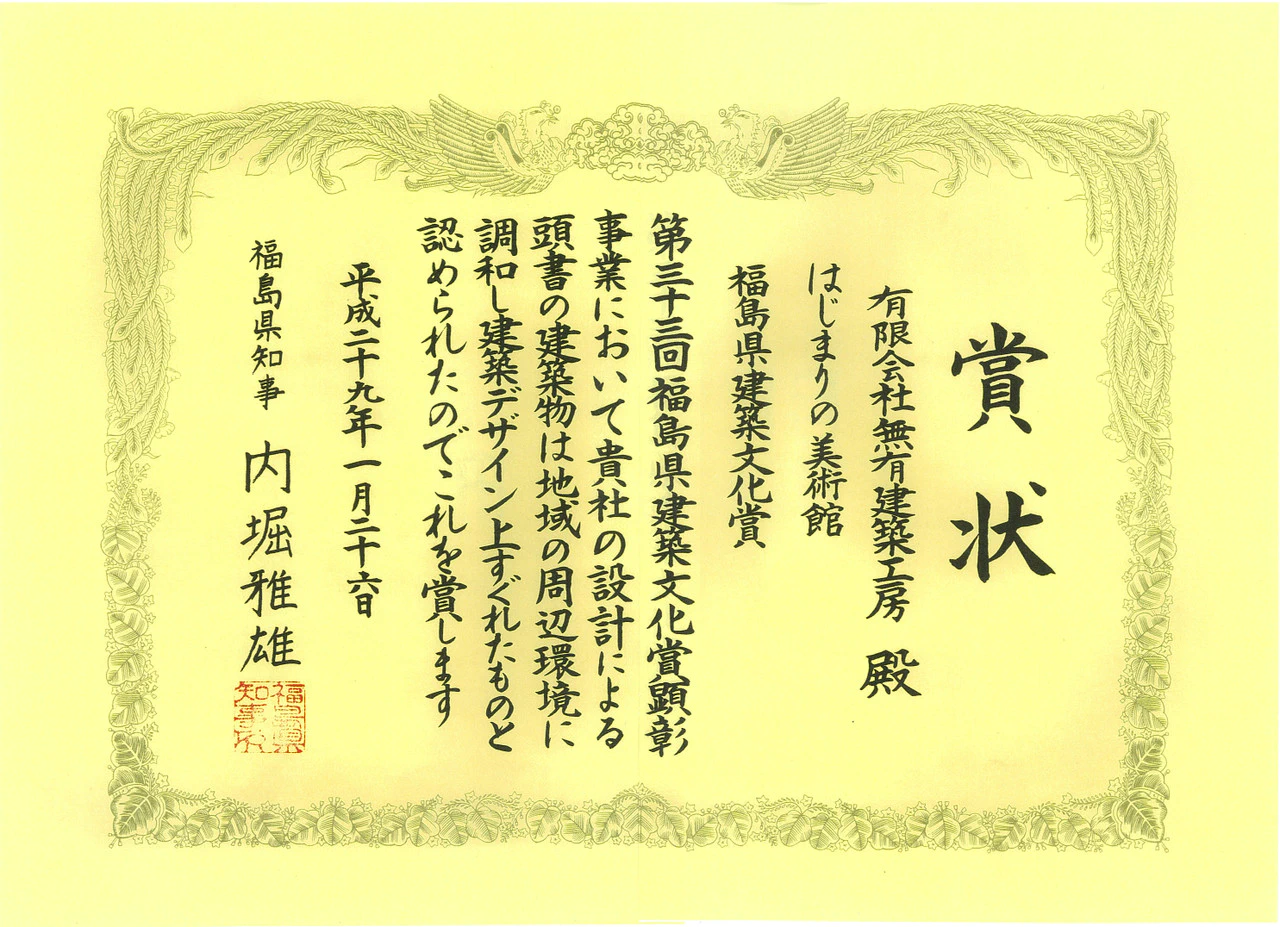 賞状
有限会社無有建築工房 殿
はじまりの美術館
福島県建築文化賞
第三十三回福島県建築文化賞顕彰
事業において貴社の設計による
頭書の建築物は地域の周辺環境に
調和し建築デザイン上すぐれたものと
認められたのでこれを賞します
平成二十九年一月二十六日
福島県知事 内堀雅雄
福島県
知事之